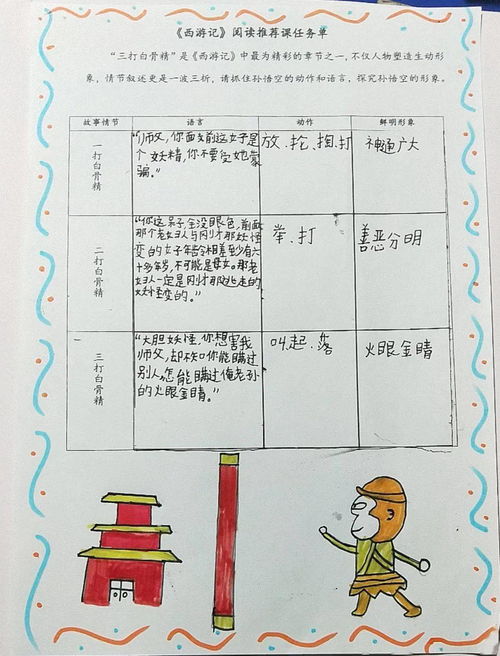 《西游记》阅读推荐课任务单
“三打白骨精”是《西游记》中最为精彩的章节之一,不仅人物塑造生动形
象,情节叙述更是一波三折,请抓住孙悟空的动作和语言,探究孙悟空的形象。
故事情节 语言 动作 鲜明形象
一打白骨精
“师父,你面前这女子是
个妖精,你不要受她蒙
骗。”
放、抡、掴、打
神通广大
二打白骨精
“你这呆子,全没眼色,前面
那个老妇人与刚才那妖怪
变的女子年龄相差至少有六
十多岁,不可能是母女。那老
妇人一定是刚才那逃走的
妖怪变的。”
举、打
善恶分明
三打白骨精
“大胆妖怪,你想害我
师父,却不知你能瞒过
别人,怎能瞒过俺老孙
的火眼金睛。”
叫、起、落
火眼金睛